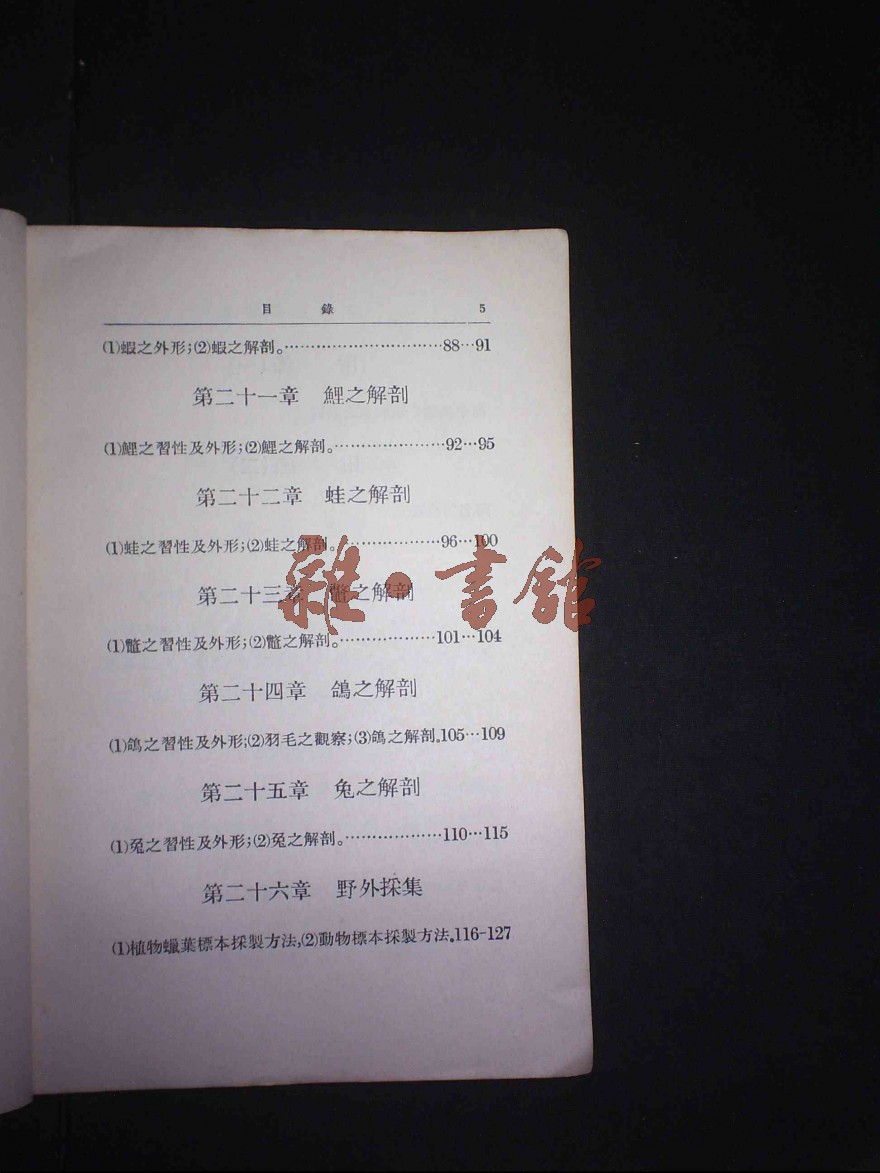 目錄 5
(1)蝦之外形;(2)蝦之解剖。…………………………88…91
第二十一章 鯉之解剖
(1)鯉之習性及外形;(2)鯉之解剖。…………………92…95
第二十二章 蛙之解剖
(1)蛙之習性及外形;(2)蛙之解剖。………………96…100
第二十三章 鼈之解剖
(1)鼈之習性及外形;(2)鼈之解剖。………………101…104
第二十四章 鴿之解剖
(1)鴿之習性及外形;(2)羽毛之觀察;(3)鴿之解剖。105…109
第二十五章 兔之解剖
(1)兔之習性及外形;(2)兔之解剖。………………110…115
第二十六章 野外採集
(1)植物蠟葉標本採製方法,(2)動物標本採製方法。116-127
雜·書館